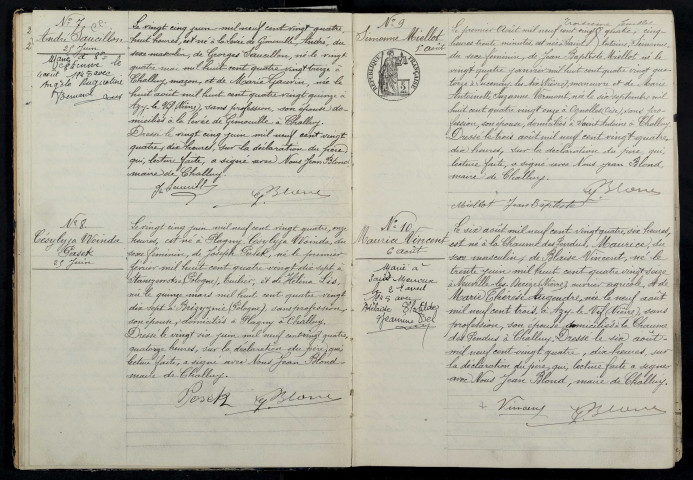 Nº 7
André Saucillon
25 Juin
Marié à
le
août 1945 avec
Angèle
Le vingt cinq juin mil neuf cent vingt quatre,
huit heures, est né à la Levée de Gimouille, André, du
sexe masculin, de Georges Saucillon, né le vingt
quatre mai mil huit cent quatre vingt treize à
Challuy, maçon, et de Marie née le
huit août mil huit cent quatre vingt quinze à
Azy le Vif (Nièv), sans profession, son épouse do-
miciliés à la Levée de Gimouille à Challuy.
Dressé le vingt cinq juin mil neuf cent vingt
quatre, dix heures, sur la déclaration du père
qui, lecture faite, a signé avec Nous Jean Blond
maire de Challuy.
J Blond
Nº 8
Césylyja Woinda
Pasek
25 Juin
Le vingt cinq juin mil neuf cent vingt quatre, onze
heures, est née à Plagny, Césylyja Woinda, du
sexe féminin, de Joseph Pasek, né le premier
février mil huit cent quatre vingt dix sept à
(Pologne), et de Helena Lis,
née le quinze mars mil huit cent quatre vingt
dix sept à (Pologne), sans profession,
son épouse, domiciliés à Plagny à Challuy.
Dressé le vingt six juin mil neuf cent vingt quatre,
quatorze heures, sur la déclaration du père, qui,
lecture faite, a signé avec Nous Jean Blond
maire de Challuy.
Pasek J Blond
Nº 9
Simonne Miellot
1er août
RÉPUBLIQUE FRANÇAISE
Le premier Août mil neuf cent vingt quatre, cinq
heures trente minutes, est née Simonne
du sexe féminin, de Jean Baptiste Miellot, né le
vingt quatre janvier mil huit cent quatre vingt qua-
torze à (Nièvre), manœuvre, et de Marie
Antoinette Suzanne née le six septembre mil
huit cent quatre vingt onze à sans pro-
fession, son épouse, domiciliés à Saint Antoine à Challuy.
Dressé le trois août mil neuf cent vingt quatre
dix heures, sur la déclaration du père qui,
lecture faite, a signé avec Nous Jean Blond
maire de Challuy.
J Blond
Miellot Jean Baptiste
Nº 10
Maurice Vincent
6 août
Marié à
Saint
le 2 avril
1949 avec
Jeannine
Le six août mil neuf cent vingt quatre, six heures,
est né à la Chaume des Pendus, Maurice, du
sexe masculin, de Blaise Vincent, né le
trente juin mil huit cent quatre vingt seize
à Neuville les Decize (Nièvre), ouvrier agricole, et de
Marie Thérèse Augendre, née le neuf août
mil neuf cent trois, à Azy le Vif (Nièvre), sans
profession, son épouse domiciliés à la Chaume
des Pendus à Challuy. Dressé le six août
mil neuf cent vingt quatre, dix heures, sur
la déclaration du père, qui, lecture faite a signé
avec Nous Jean Blond, maire de Challuy.
Vincent J Blond